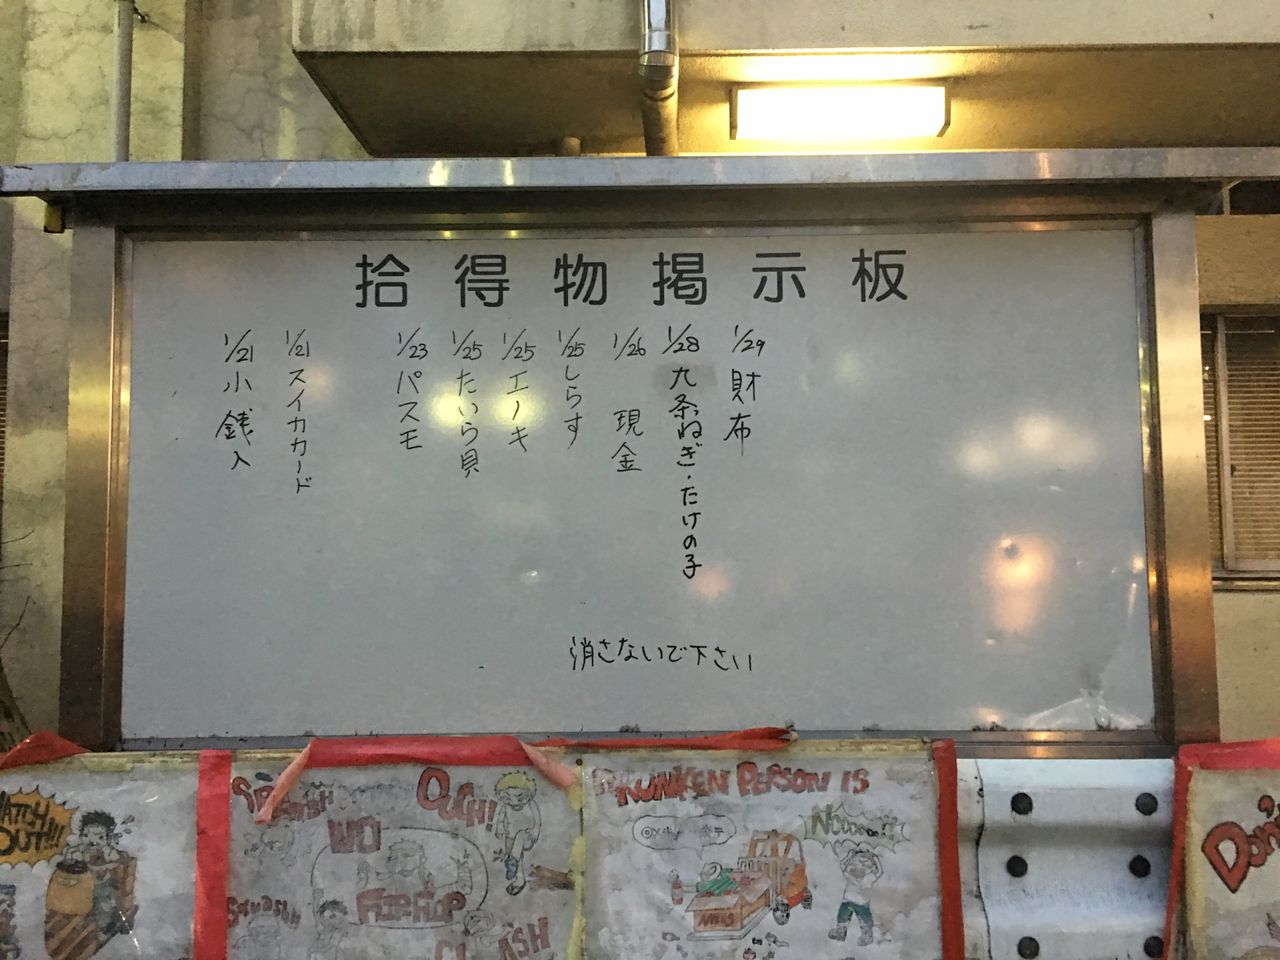 拾得物掲示板
1/29 財布
1/28 九条ねぎ・たけの子
1/26 現金
1/25 しらす
1/25 エノキ
1/25 たいら貝
1/23 パスモ
1/21 スイカカード
1/21 小銭入
消さないで下さい
OUT!!!
SPLASHH
OUCH!!
NO
FLIP FLOP
Squashh
CLASH
DRUNKEN PERSON IS
Nooooo!!
Don't